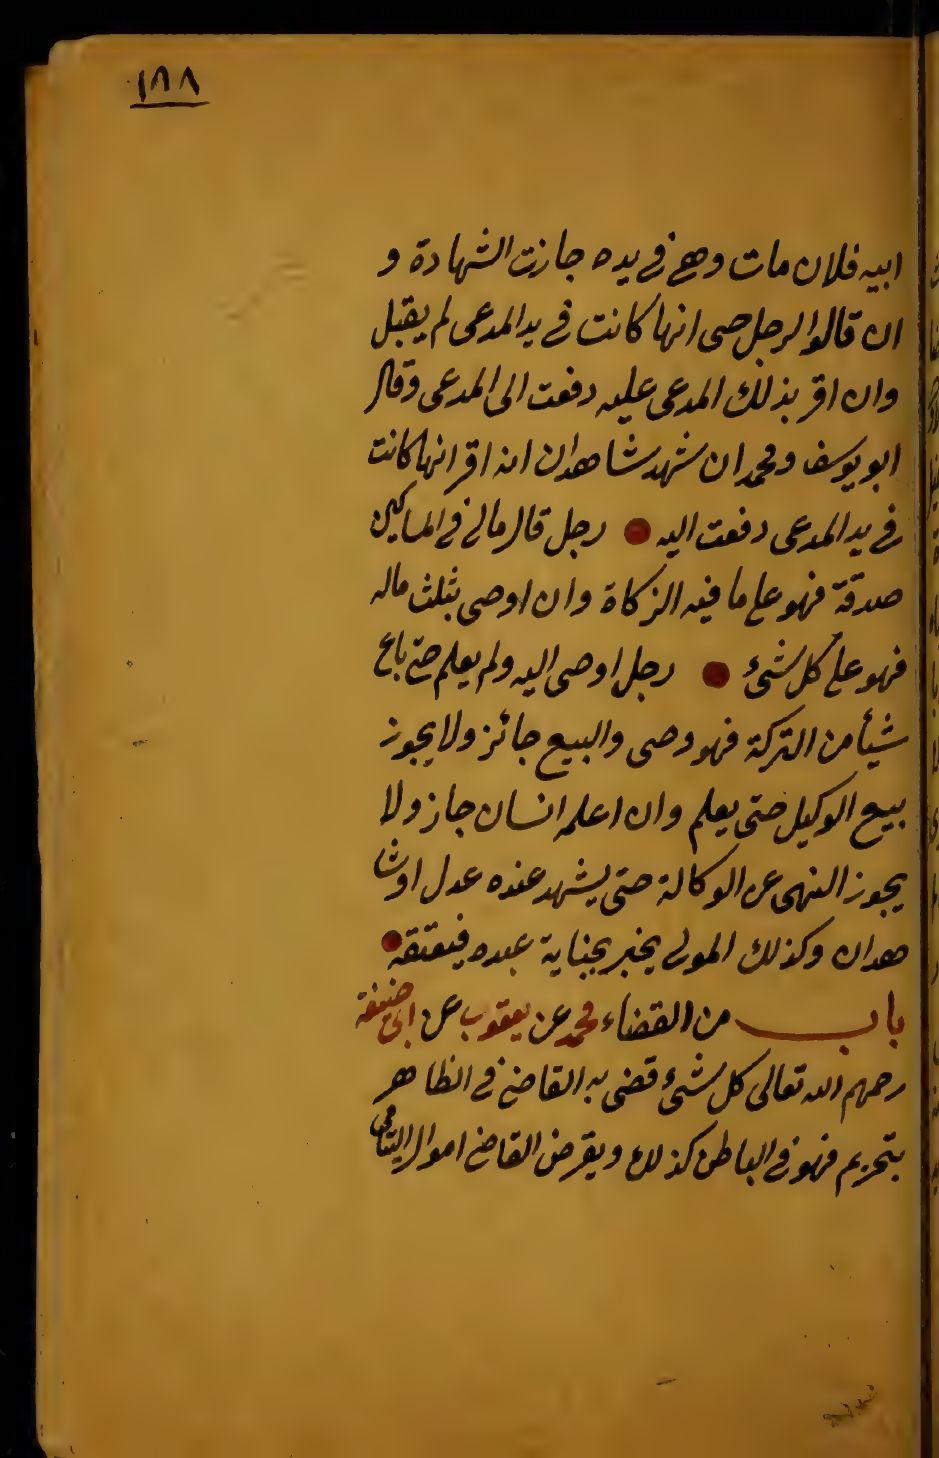 ١٨٨
ابيه فلان مات وهي في يده جازت الشهادة و
ان قالوا لرجل حي انها كانت في يد المدعى لم يقبل
وان اقر بذلك المدعى عليه دفعت الى المدعى وقال
ابو يوسف ومحمد ان شهد شاهدان انه اقر انها كانت
في يد المدعى دفعت اليه رجل قال مالى في المساكين
صدقة فهو على ما فيه الزكاة وان اوصى بثلث ماله
فهو على كل شئ رجل اوصى اليه ولم يعلم حتى باع
شيأ من التركة فهو وصى والبيع جائز ولا يجوز
بيع الوكيل حتى يعلم وان اعلمه انسان جاز ولا
يجوز النهى عن الوكالة حتى يشهد عنده عدل او شا
هدان وكذلك المولى يخبر بجناية عبده فيعتقه
باب من القضاء محمد عن يعقوب عن ابى حنيفة
رحمهم الله تعالى كل شئ قضى به القاضى في الظاهر
بتحريم فهو في الباطن كذلك ويقرض القاضى اموال اليتامى